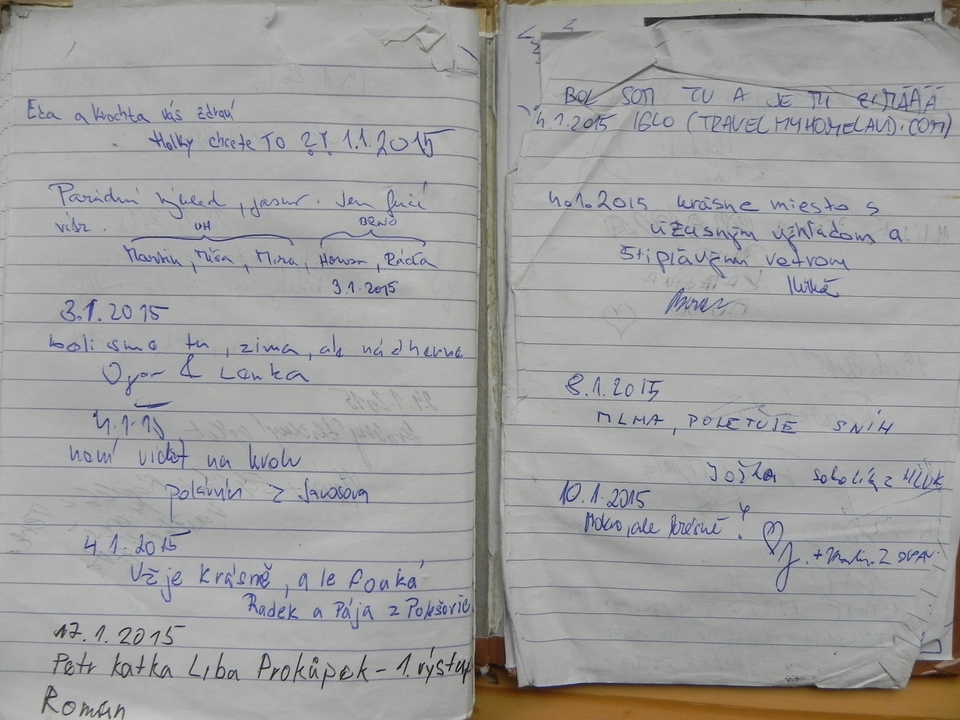 Eča a krochta vás zdraví
Holky chcete TO ?? 1.1.2015
Parádní výhled, jasno. Jen fučí
vítr.
UH BRNO
Martin, Míša, Mira, Honza, Ráďa
3.1.2015
3.1.2015
boli smo tu, zima, ale nádherne
& Lenka
4.1.15
není vidět na krok
z
4.1.2015
Vše je krásně, ale fouká
Radek a Pája z Polešovic
17.1.2015
Petr Katka Liba Prokůpek - 1. výstup
Roman
BOL SOM TU A JE MI ZIMÁÁÁ
4.1.2015 IGLO (TRAVELMYHOMELAND.COM)
4.1.2015 krásne miesto s
úžasným výhľadom a
štipľavým vetrom
8.1.2015
MLHA, POLETUJE SNÍH
Jožka sokolík z HLUK
10.1.2015
Mokro, ale krásně!
J. + z